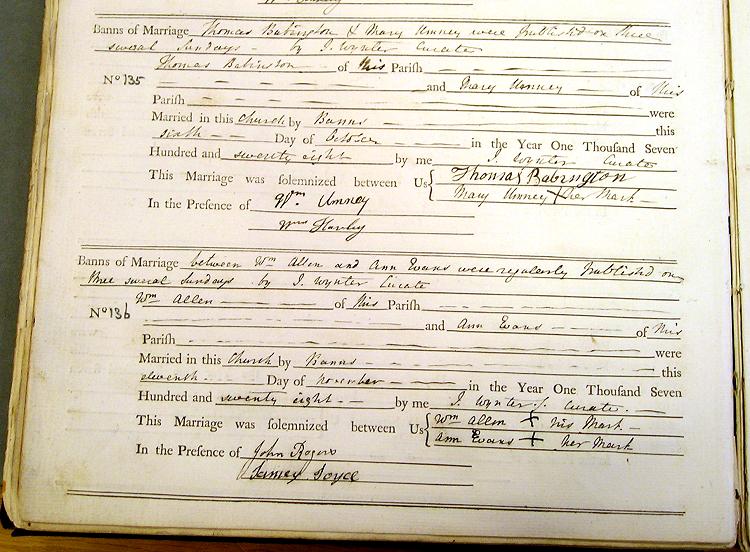 Banns of Marriage Thomas Babington & Mary Umney were published on three
several Sundays - by J. Wynter Curate
Thomas Babington - of this Parish
No 135 and Mary Umney - of this
Parish were
Married in this Church by Banns this
sixth Day of October in the Year One Thousand Seven
Hundred and seventy eight by me J. Wynter Curate
This Marriage was solemnized between Us { Thomas Babington
Mary Umney X her Mark
In the Presence of Wm. Umney
Wm
Banns of Marriage between Wm Allen and Ann Evans were regularly published on
three several Sundays by J. Wynter Curate
Wm Allen of this Parish
No 136 and Ann Evans of this
Parish were
Married in this Church by Banns this
eleventh Day of november in the Year One Thousand Seven
Hundred and seventy eight by me J. Wynter Curate
This Marriage was solemnized between Us { Wm Allen + his Mark
Ann Evans + her Mark
In the Presence of John Rogers
James Joyce